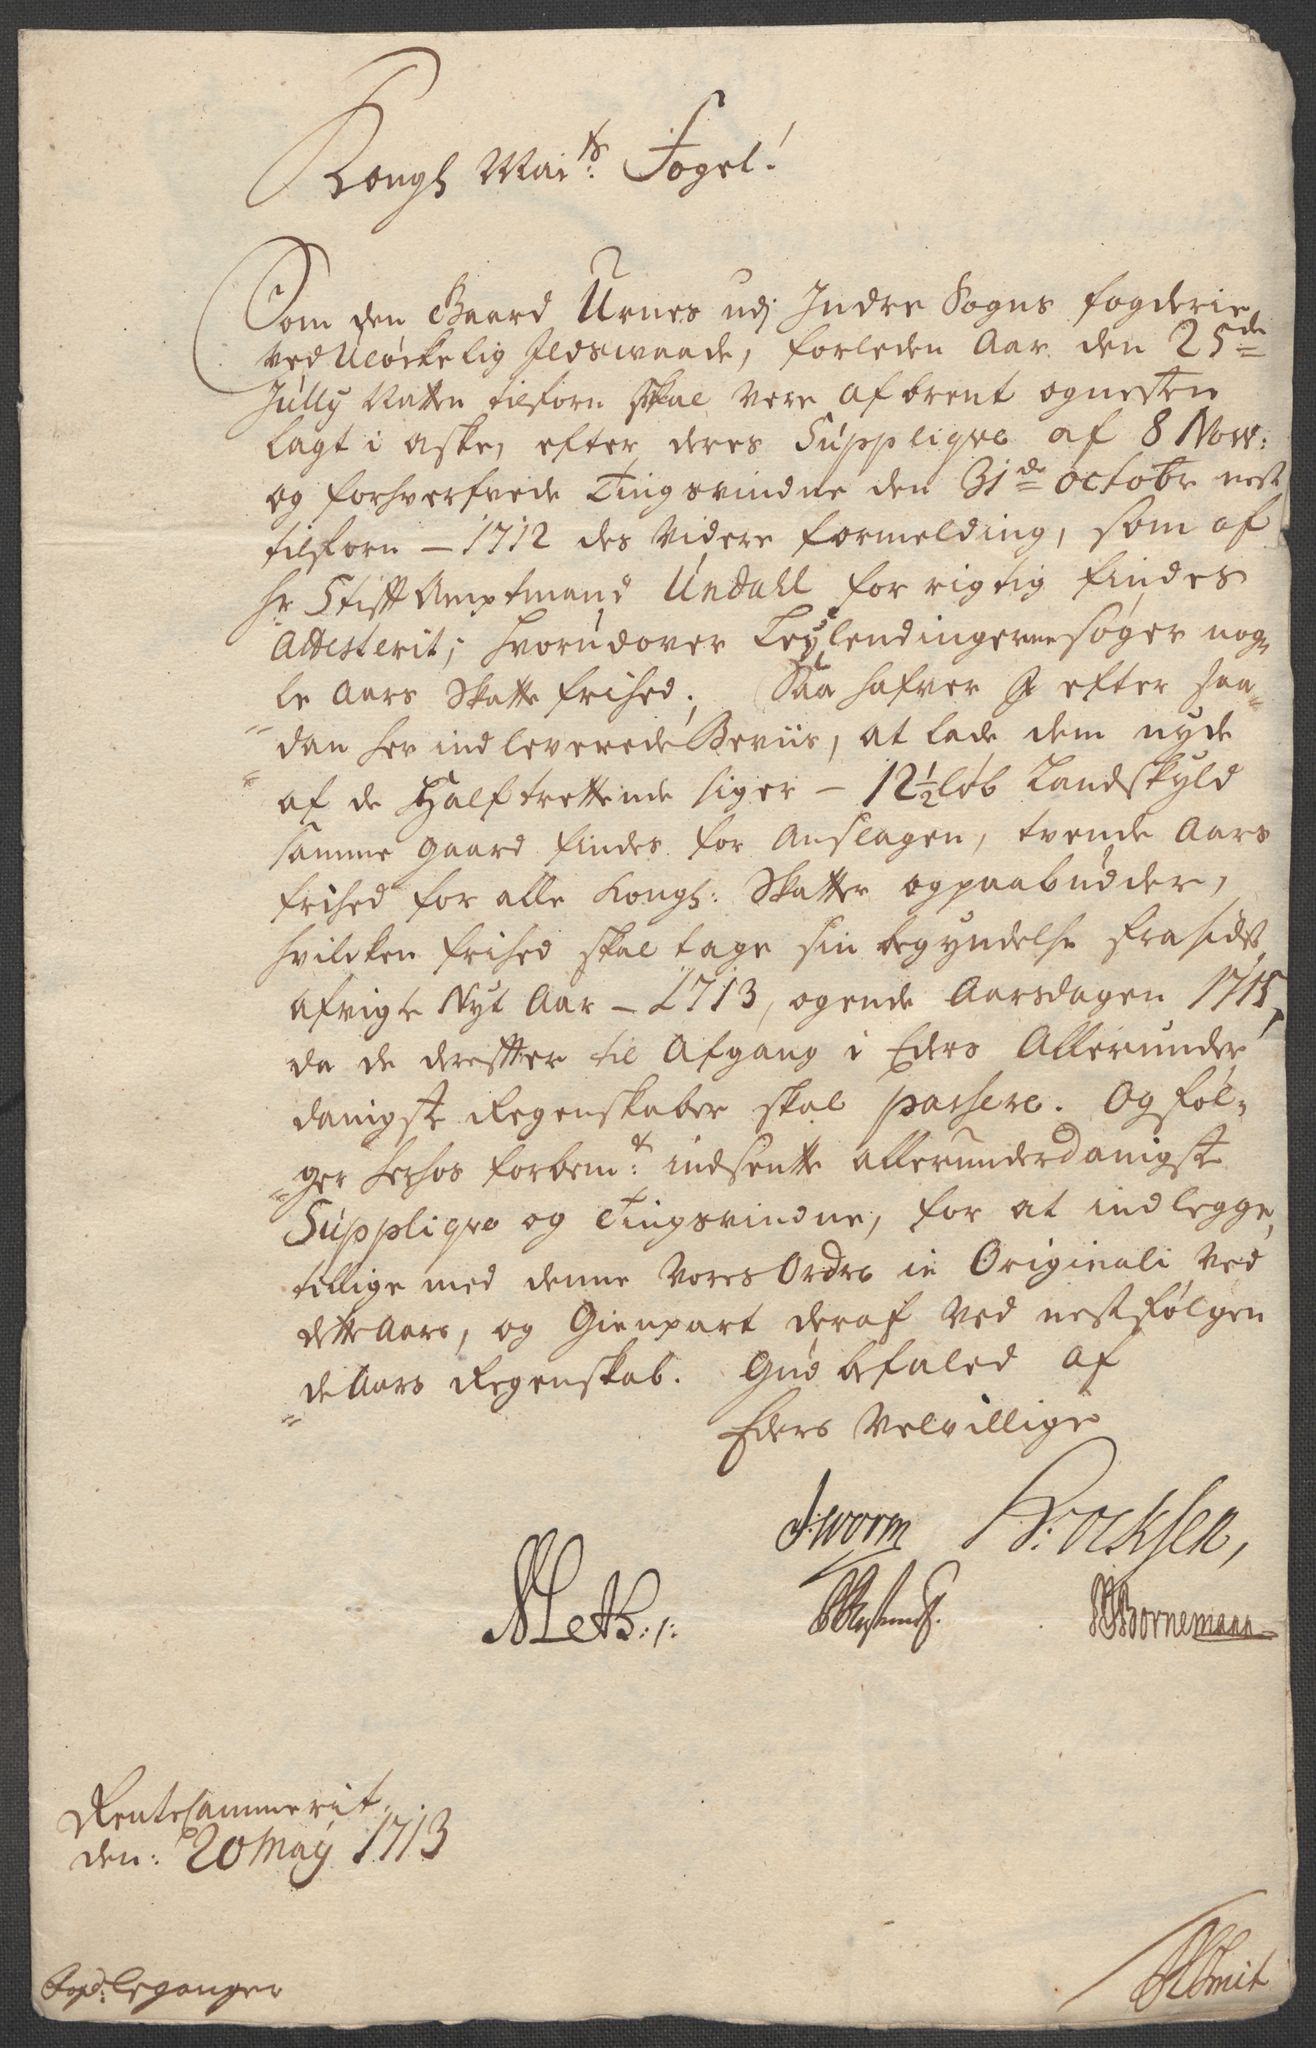 Kongl Mai<sup>ts</sup>: Foget!
Som den Gaard Urnes udj Indre Sogns fogderie
ved Uløckelig Ildswaade, forleden Aar den 25<sup>de</sup>
Jully Natten tilforn skal vere afbrent og nesten
lagt i aske, efter deres Suppliqve af 8 Novr:
og forhverfvede Tingsvindne den 31<sup>de</sup> octobr nest
tilforn – 1712 des videre formelding, som af
hr Stiftamptmand Undall for rigtig findes
Attesterit; hvorudover Leylendingerne søger nog-
le Aars Skatte frihed; Saa hafver I efter saa-
dan her indleverede Beviis, at lade dem nyde
af de Halftrettende siger – 12½ Løb Landskyld
samme gaard findes for Anslagen, tvende Aars
frihed for alle Kongl: Skatter og paabudder,
hvilcken frihed skal tage sin begyndelse fra sidst
afvigte Nyt Aar – 1713, og ende Aarsdagen 1715,
da de derefter til Afgang i Eders Allerunder
danigste Regenskaber skal passere. Og føl-
ger herhos forbem<sup>te</sup>: indsente allerunderdanigste
Suppliqve og Tingsvindne, for at indlegge,
tillige med denne Vores Ordre in Originali ved
dette Aars, og Gienpart deraf ved nestfølgen
de Aars Regenskab. Gud befaled af
Eders Velvillige
J. Worm
Meth:/:
Bornemann
Rentecammerit
den: 20 May 1713
Fogd: Leganger
Smit